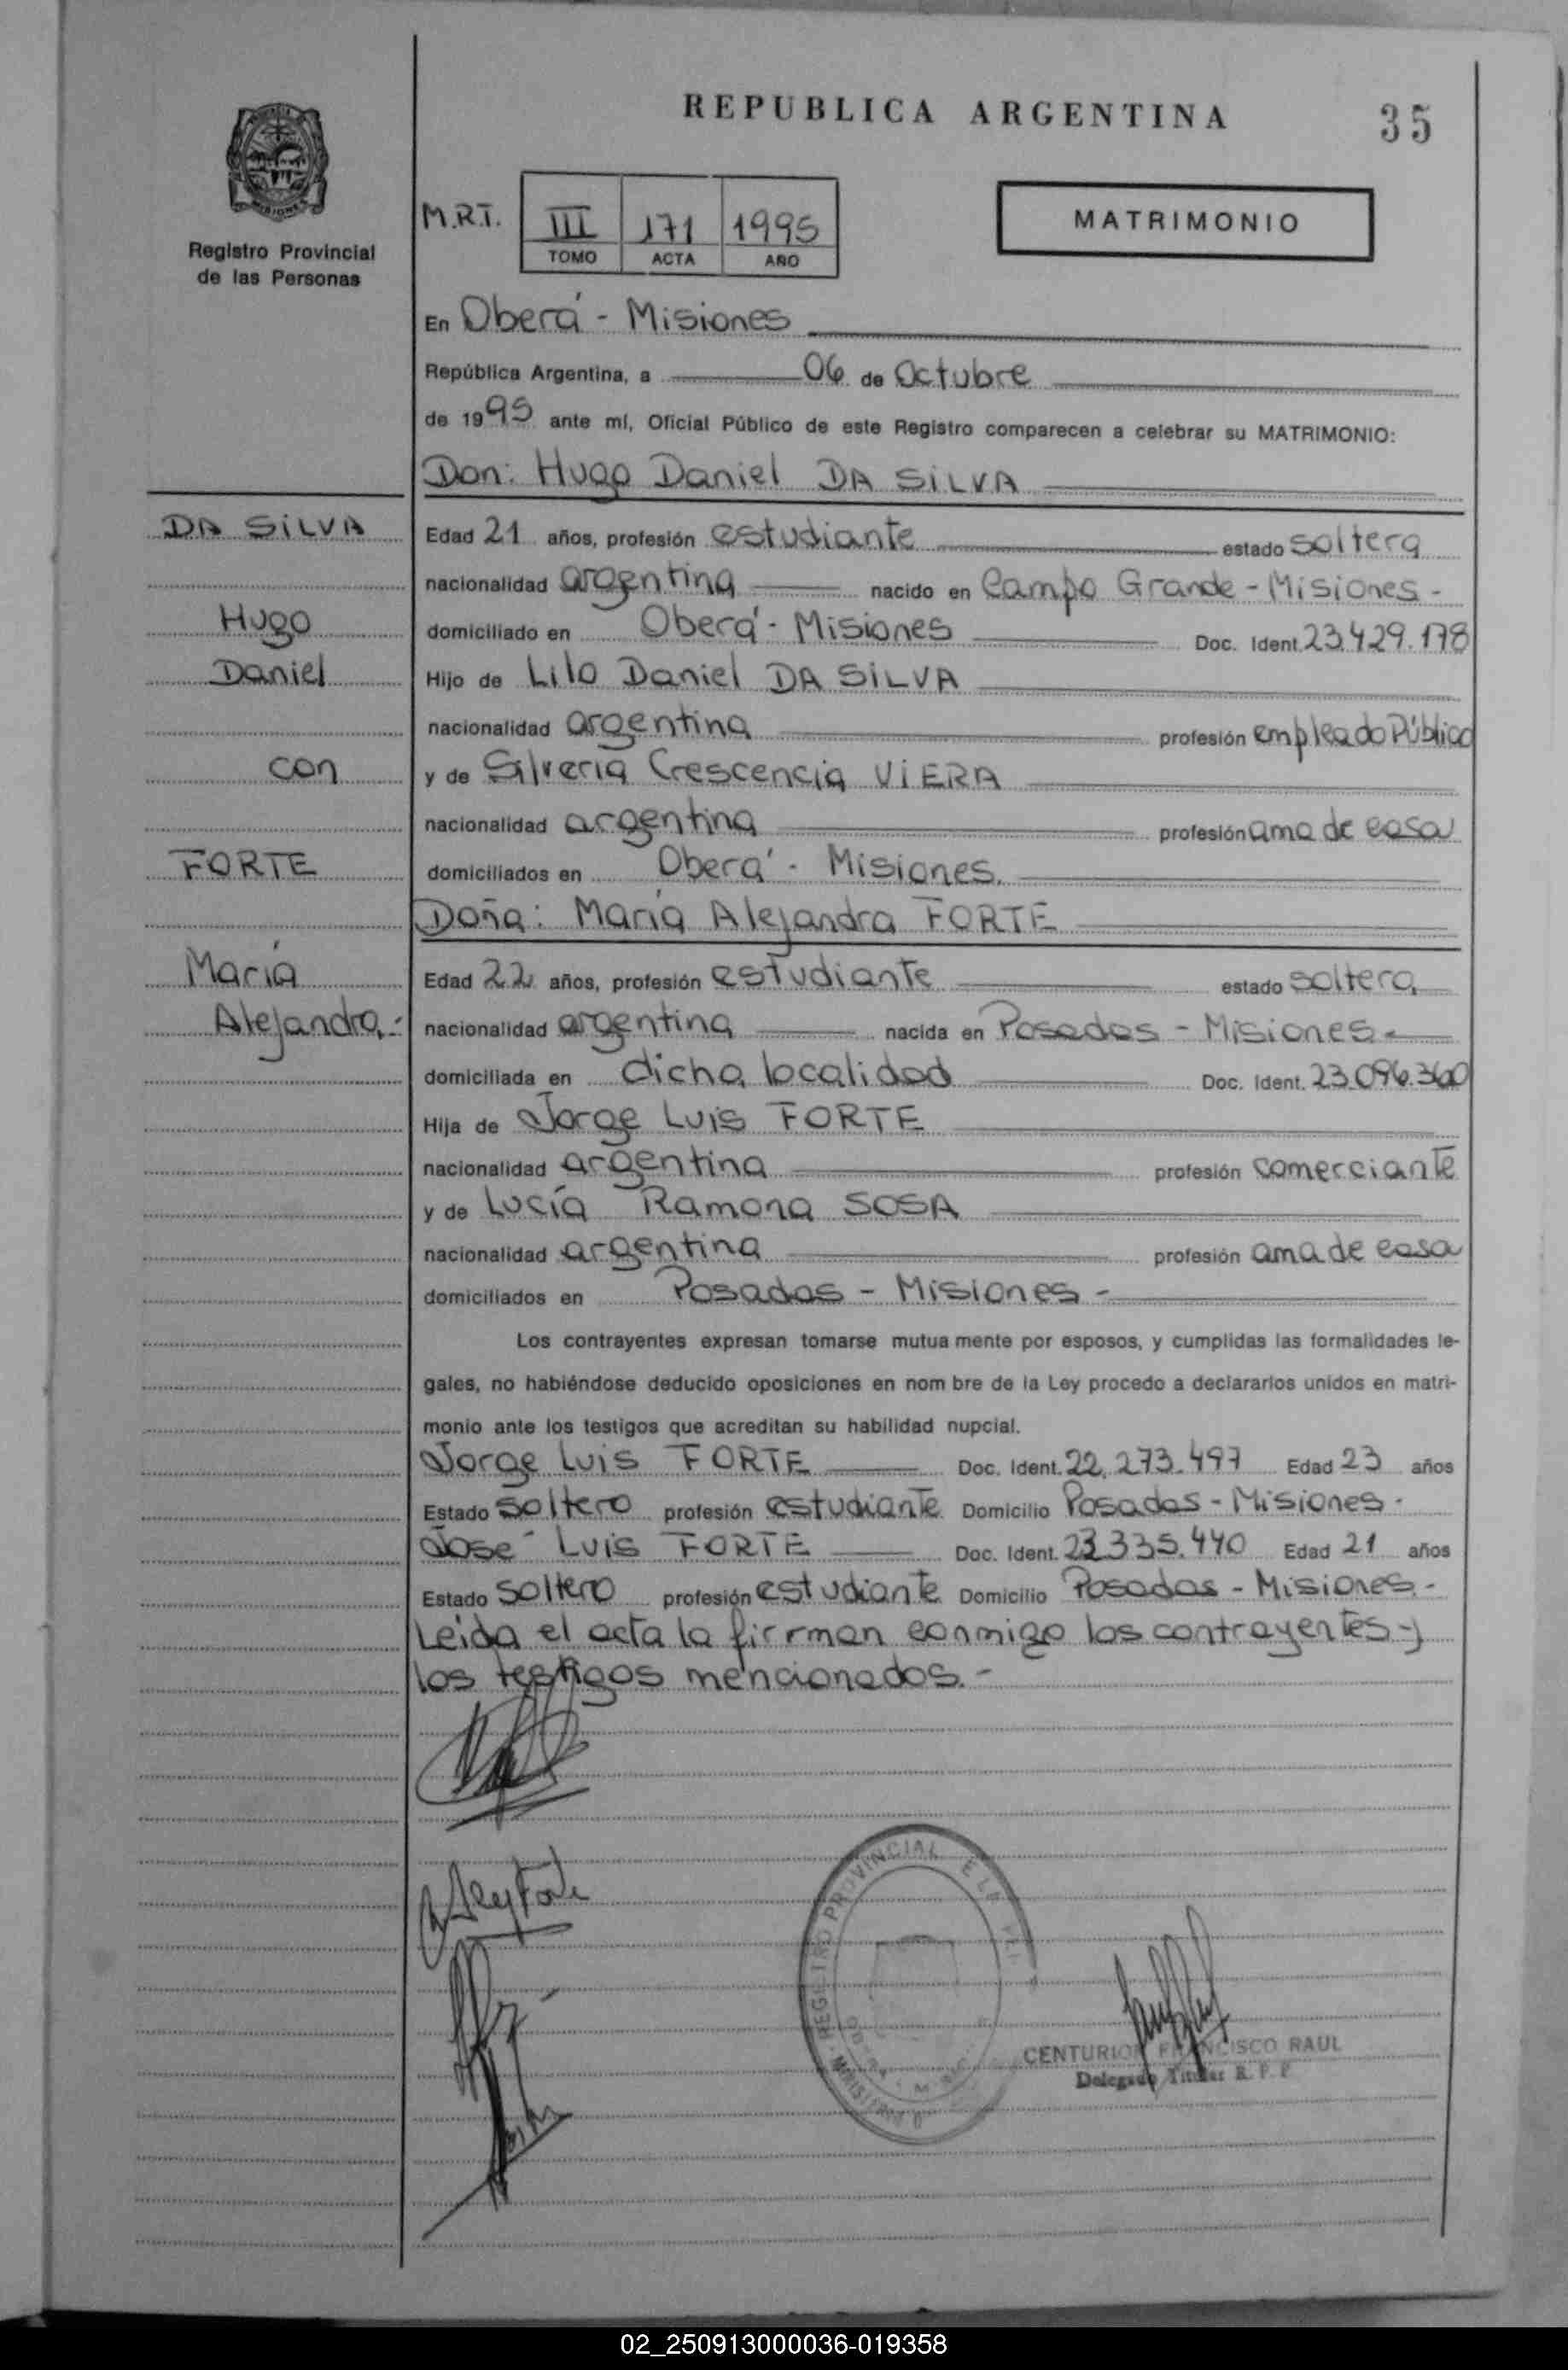 REPUBLICA ARGENTINA
35
MISIONES
Registro Provincial
de las Personas
M.R.T.
III 171 1995
TOMO ACTA AÑO
MATRIMONIO
En Oberá - Misiones
República Argentina, a 06 de Octubre
de 1995 ante mí, Oficial Público de este Registro comparecen a celebrar su MATRIMONIO:
Don: Hugo Daniel DA SILVA
DA SILVA
Hugo
Daniel
con
FORTE
María
Alejandra.-
Edad 21 años, profesión estudiante estado soltera
nacionalidad argentina nacido en Campo Grande - Misiones -
domiciliado en Oberá - Misiones Doc. Ident. 23.429.178
Hijo de Lilo Daniel DA SILVA
nacionalidad argentina profesión empleado Público
y de Silveria Crescencia VIERA
nacionalidad argentina profesión ama de casa
domiciliados en Oberá - Misiones.
Doña: María Alejandra FORTE
Edad 22 años, profesión estudiante estado soltera
nacionalidad argentina nacida en Posadas - Misiones -
domiciliada en dicha localidad Doc. Ident. 23.096.360
Hija de Jorge Luis FORTE
nacionalidad argentina profesión comerciante
y de Lucía Ramona SOSA
nacionalidad argentina profesión ama de casa
domiciliados en Posadas - Misiones -
Los contrayentes expresan tomarse mutua mente por esposos, y cumplidas las formalidades le-
gales, no habiéndose deducido oposiciones en nom bre de la Ley procedo a declararlos unidos en matri-
monio ante los testigos que acreditan su habilidad nupcial.
Jorge Luis FORTE Doc. Ident. 22.273.497 Edad 23 años
Estado soltero profesión estudiante Domicilio Posadas - Misiones -
José Luis FORTE Doc. Ident. 23.335.440 Edad 21 años
Estado soltero profesión estudiante Domicilio Posadas - Misiones.-
Leída el acta la firman conmigo los contrayentes y
los testigos mencionados.-
REGISTRO PROVINCIAL
CENTURION FRANCISCO RAUL
Delegado Titular R. P. P.
02_250913000036-019358